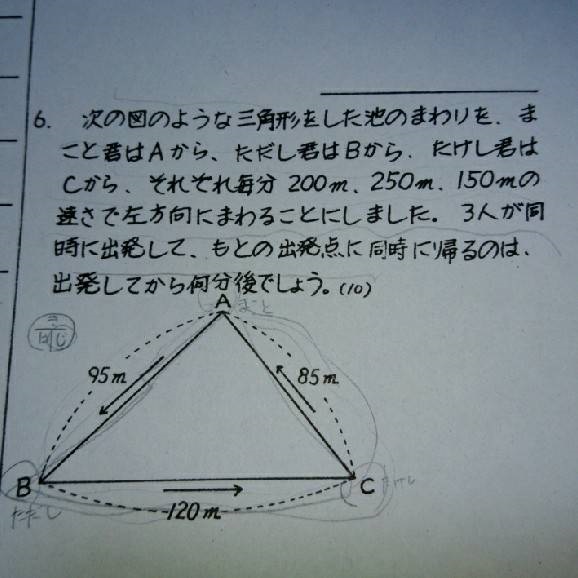 6. 次の図のような三角形をした池のまわりを、ま
こと君はAから、ただし君はBから、たけし君は
Cから、それぞれ毎分 200m、250m、150mの
速さで左方向にまわることにしました。 3人が同
時に出発して、もとの出発点に同時に帰るのは、
出発してから何分後でしょう。(10)
A まこと
95m
85m
B
C たけし
ただし
120m